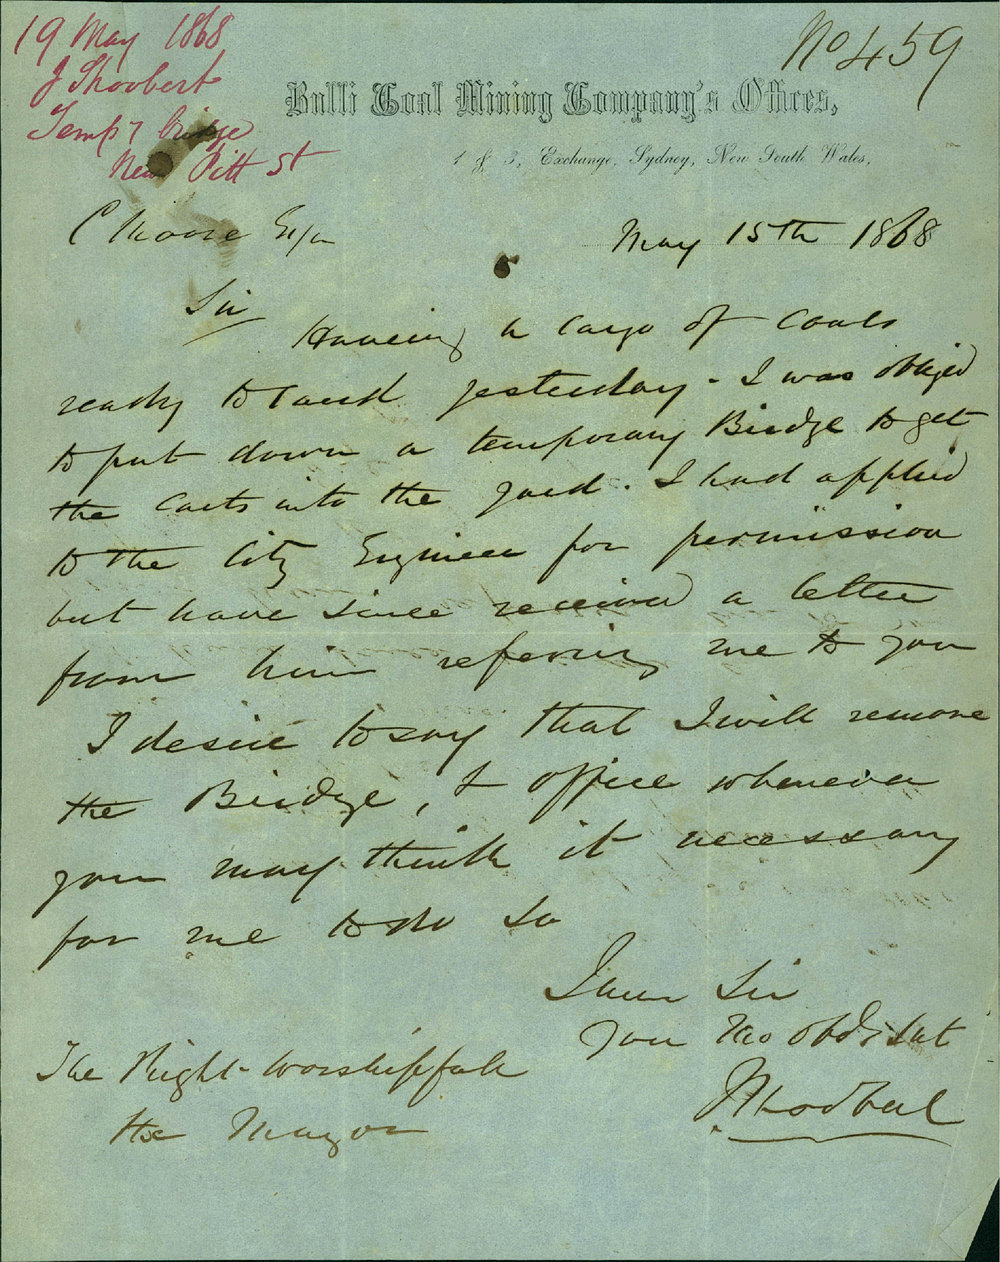 19 May 1868
J Shoobert
Tempy bridge
New Pitt St
No 459
Bulli Coal Mining Company's Offices,
1 & 3, Exchange, Sydney, New South Wales,
C Moore Esqr
May 15th 1868
Sir
Having a cargo of coals
ready to land yesterday - I was obliged
to put down a temporary Bridge to get
the carts into the yard. I had applied
to the City Engineer for permission
but have since received a letter
from him refering me to you
I desire to say that I will remove
the Bridge, & office whenever
you may think it necessary
for me to do so
I am Sir
Your Mo Obdt Svt
J Shoobert
The Right Worshipfull
the Mayor